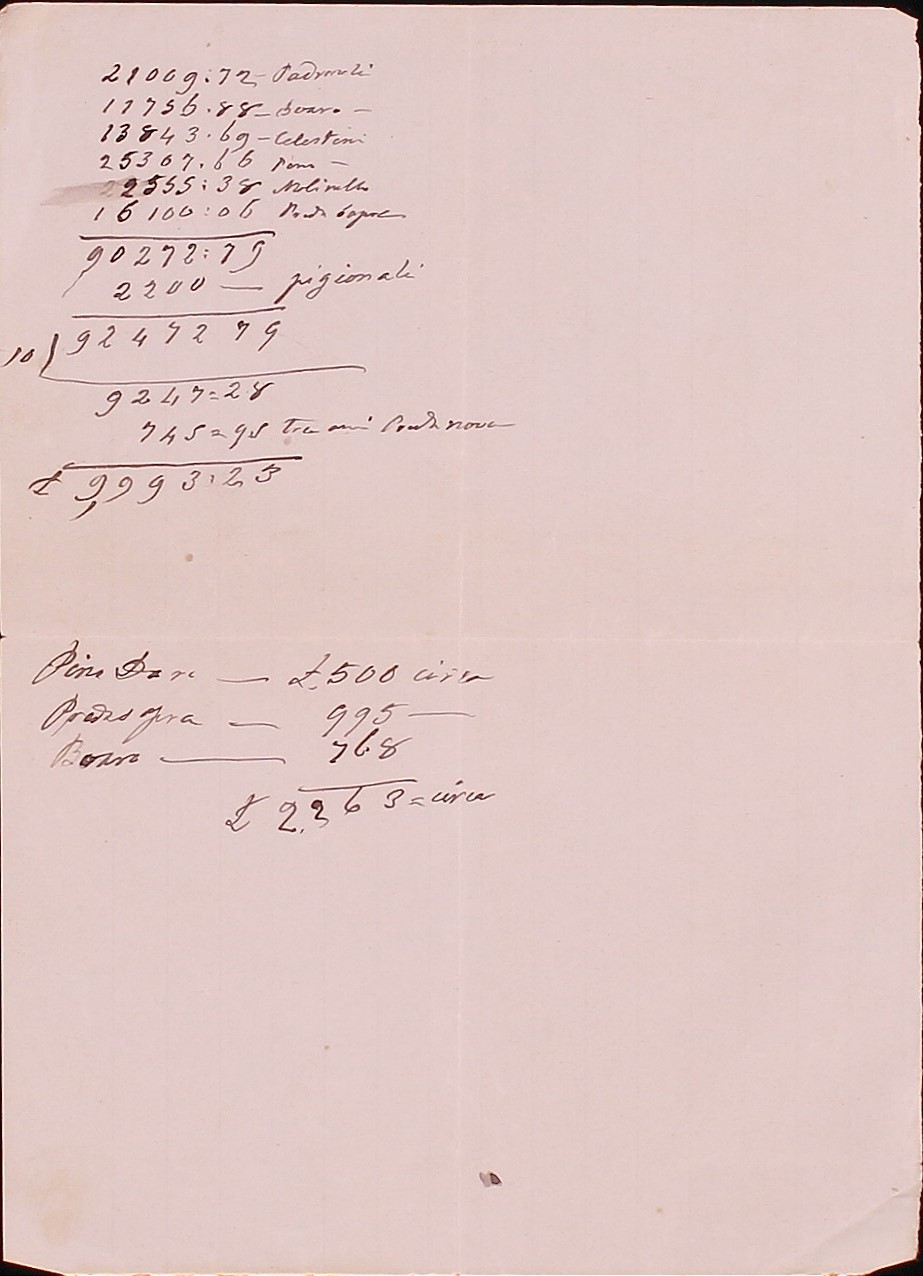 21009:72 - Padronali
11756.88 - Boaro -
13843.69 - Celestini
25307.66 Pino -
2255:38 Molinello
16100:06 Preda Sopra
90272:79
2200 — pigionali
10) 92472 79
9247=28
745=95 tra Preda nova
£ 9,993:23
Pino — £.500 circa
Preda Sopra — 995 —
Boaro — 768
£ 2.263= circa